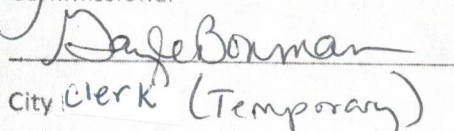 Gayle Bowman
City Clerk (Temporary)